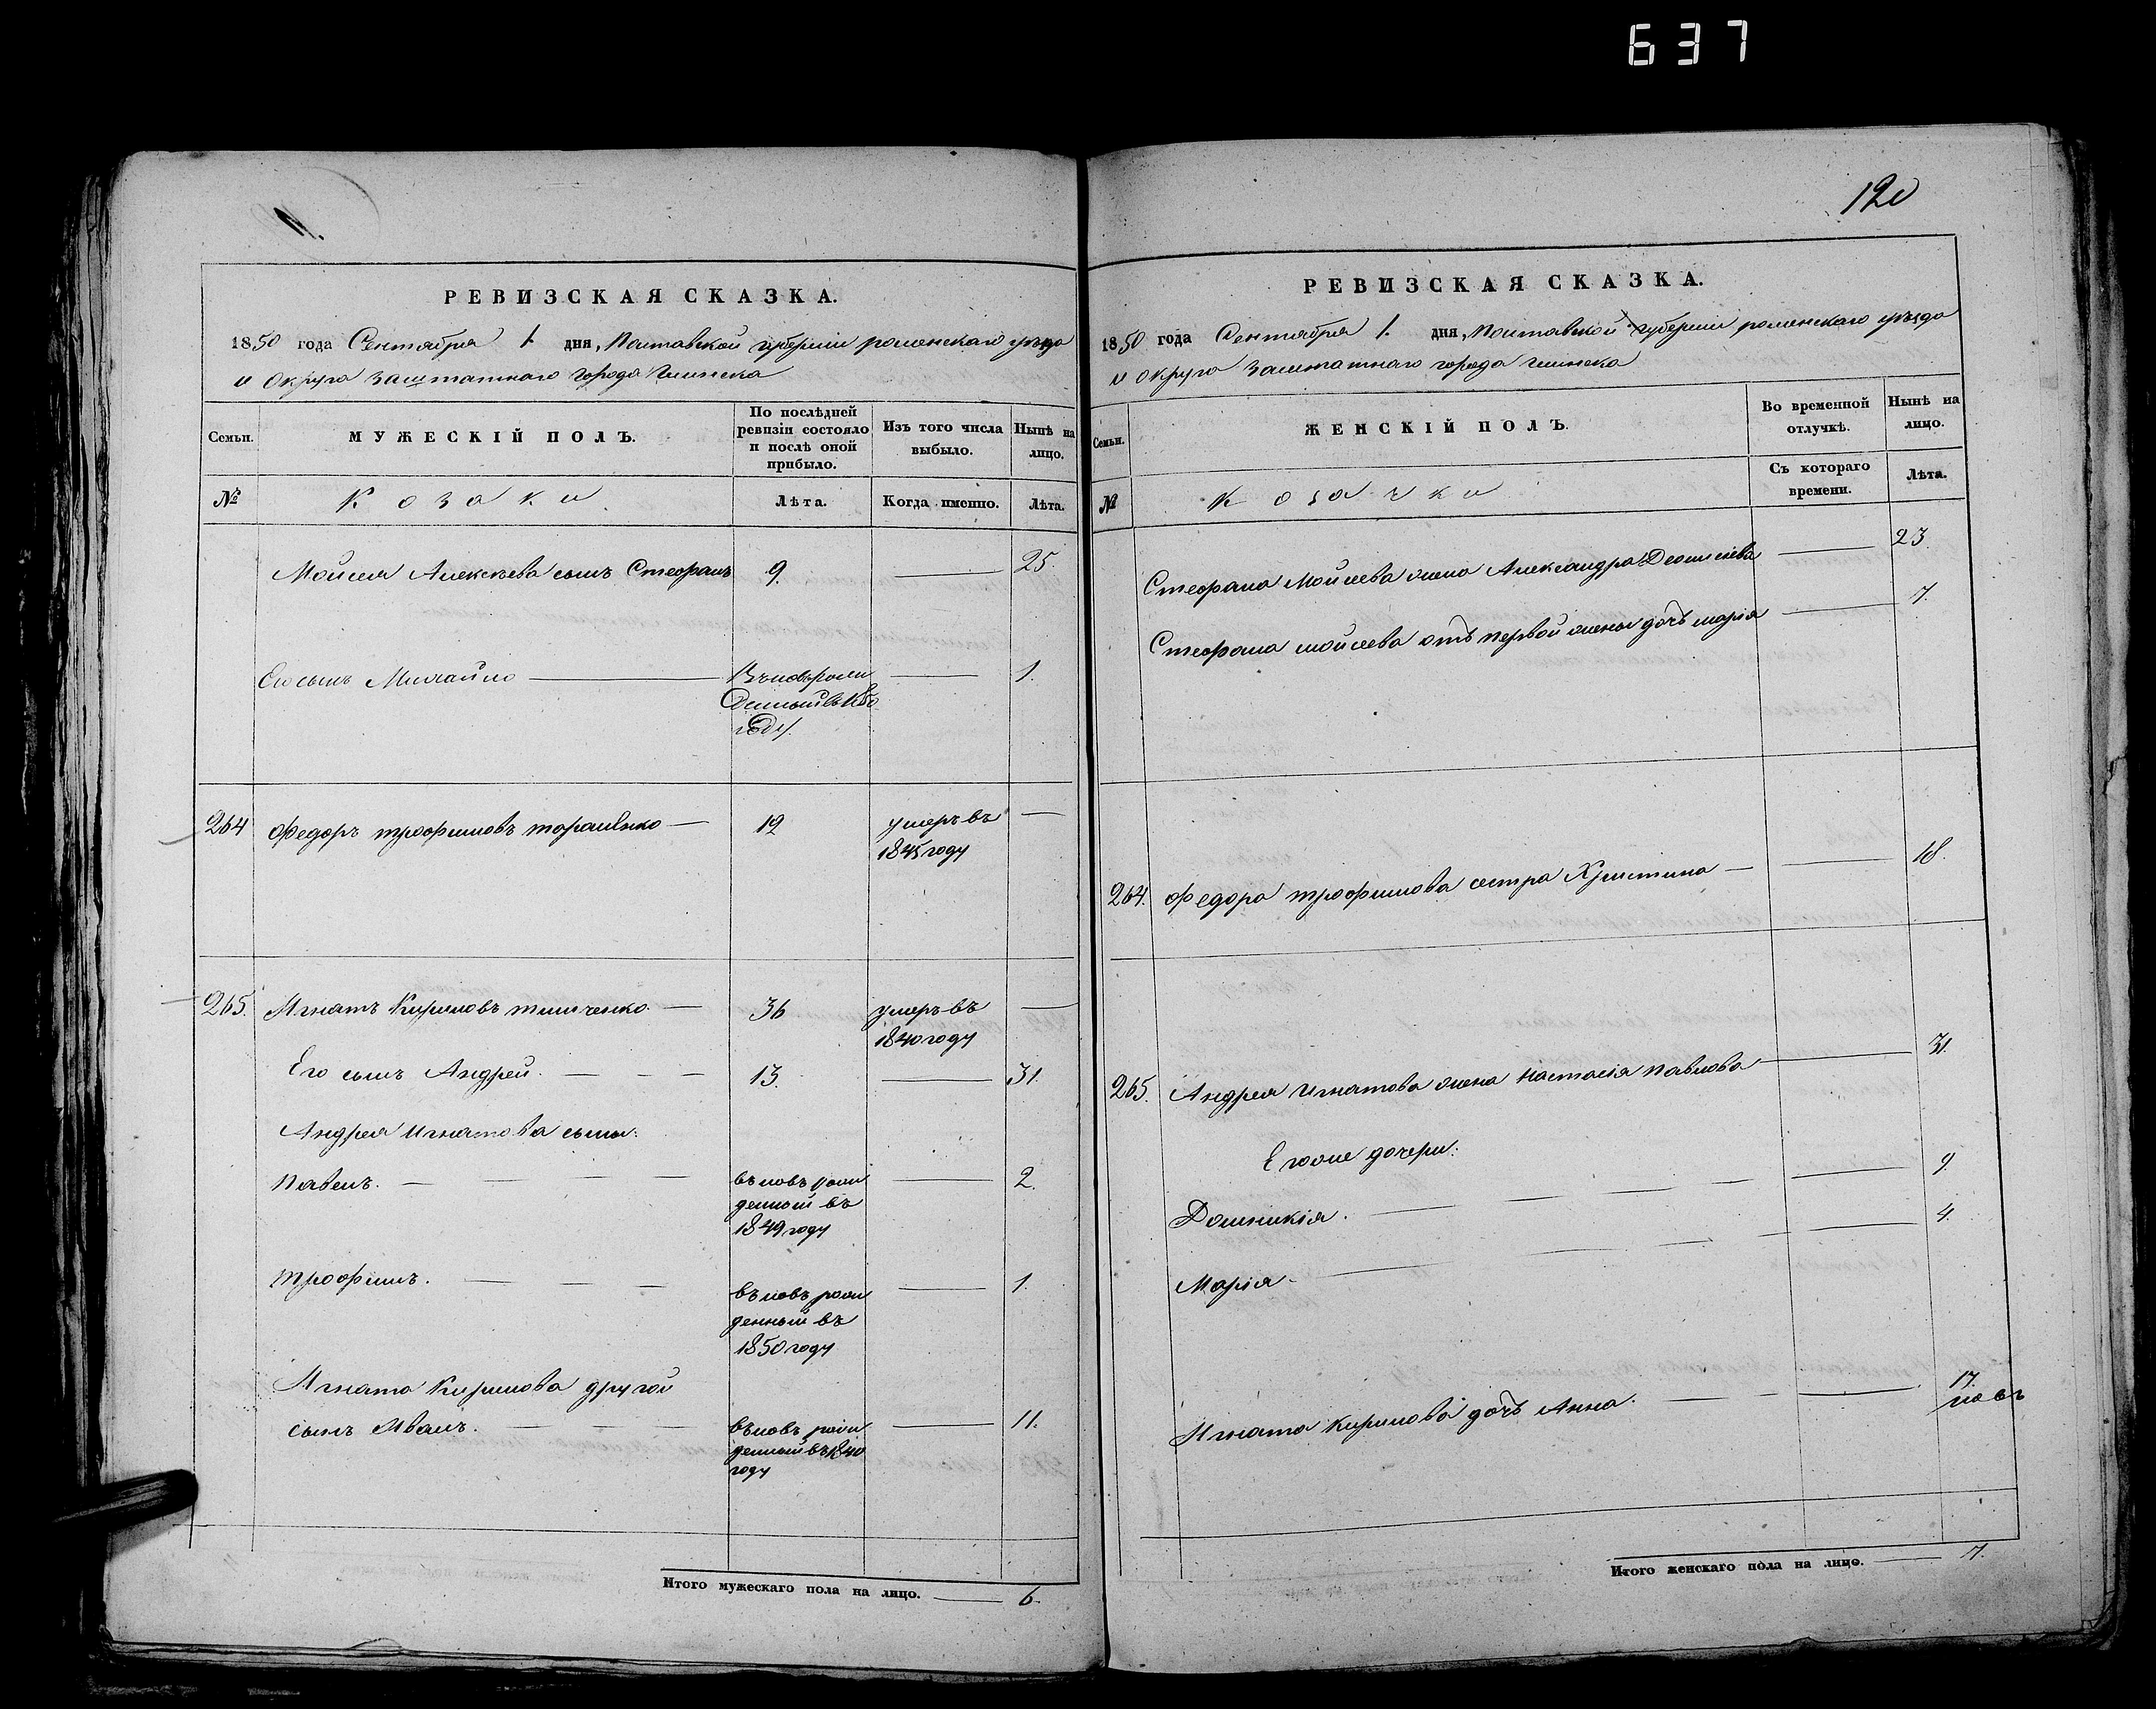 637
120
РЕВИЗСКАЯ СКАЗКА.
1850 года Сентября 1. дня, Полтавской губерніи роменскаго уѣзда
и округа заштатнаго города Глинска
Семьи.
МУЖЕСКІЙ ПОЛЪ.
По послѣдней ревизіи состояло и послѣ оной прибыло.
Изъ того числа выбыло.
Нынѣ на лицо.
№
Козаки
Лѣта.
Когда именно.
Лѣта.
Мойсея Алексѣева сынъ Стефанъ 9. — 25.
Его сынъ Михайло — Вновьрож
денный в 1850 — 1.
году.
264 Федоръ трофимовъ — 12 умеръ въ —
1845 году
265. Игнатъ Кириловъ — 36 умеръ въ —
1840 году
Его сынъ Андрей. — 13. — 31.
Андрея Игнатова сыны:
Павелъ. — вновь рож — 2.
денный въ
1849 году
трофимъ. — вновь рож — 1.
денный въ
1850 году
Игната Кирилова другой
сынъ Иванъ. — вновь рож — 11.
денный въ 1840
году
Итого мужескаго пола на лицо. — 6.
РЕВИЗСКАЯ СКАЗКА.
1850 года Сентября 1. дня, Полтавской губерніи роменскаго уѣзда
и округа заштатнаго города Глинска
Семьи.
ЖЕНСКІЙ ПОЛЪ.
Во временной отлучкѣ.
Нынѣ на лицо.
№
Козачки
Съ котораго времени.
Лѣта.
Стефана Мойсеева жена Александра — 23.
Стефана мойсеева отъ первой жены дочь марія — 7.
264. Федора трофимова сестра Христина — 18.
265. Андрея Игнатова жена настасія павлова — 31.
Егоже дочери:
Домникія. — 9.
Марія — 4.
Игната кирилова дочь Анна. — 17.
Итого женскаго пола на лицо. — 7.